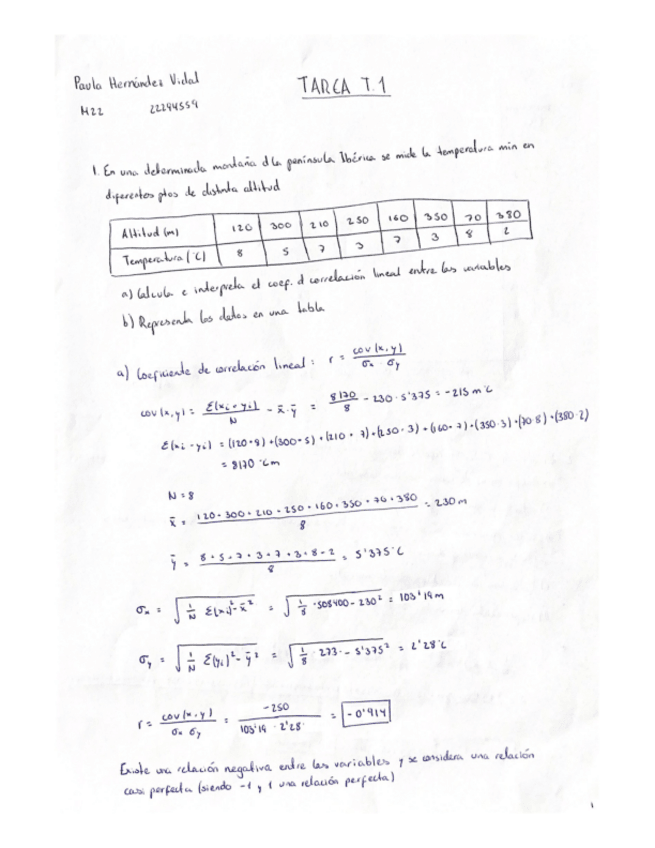 Paula Hernández Vidal
TAREA T.1
M22 22294559
1. En una determinada montaña d la península Ibérica se mide la temperatura min en
diferentes ptos de distinta altitud
Altitud (m) 120 300 210 250 160 350 70 380
Temperatura (°C) 8 5 7 3 7 3 8 2
a) Calcula e interpreta el coef. d correlación lineal entre las variables
b) Representa los datos en una tabla
a) Coeficiente de correlación lineal: r = cov(x,y) / σx σy
cov(x,y) = Σ(xi · yi) / N - x̄·ȳ = 8170 / 8 - 230 · 5'375 = -215 m°C
Σ(xi · yi) = (120·8) + (300·5) + (210 · 7) + (250 · 3) + (160 · 7) + (350·3) + (70·8) + (380·2)
= 8170 °Cm
N = 8
x̄ = 120 + 300 + 210 + 250 + 160 + 350 + 70 + 380 / 8 = 230 m
ȳ = 8 + 5 + 7 + 3 + 7 + 3 + 8 + 2 / 8 = 5'375 °C
σx = √(1/N Σ(xi)² - x̄²) = √(1/8 · 508400 - 230²) = 103'19 m
σy = √(1/N Σ(yi)² - ȳ²) = √(1/8 · 273 - 5'375²) = 2'28 °C
r = cov(x,y) / σx σy = -250 / 103'19 · 2'28 = -0'914
Existe una relación negativa entre las variables y se considera una relación
casi perfecta (siendo -1 y 1 una relación perfecta)